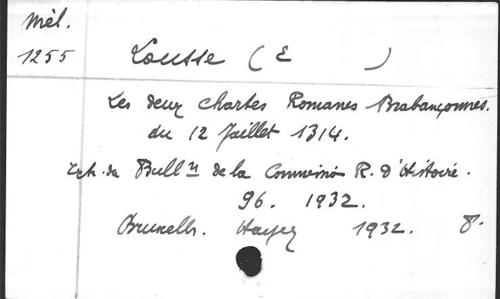 Mél.
1255
Lousse (E )
Les deux chartes Romanes Brabançonnes.
du 12 Juillet 1314.
Extr. du Bull n de la Commission R. d'Histoire.
96. 1932.
Bruxelles. Hayez 1932. 8°.